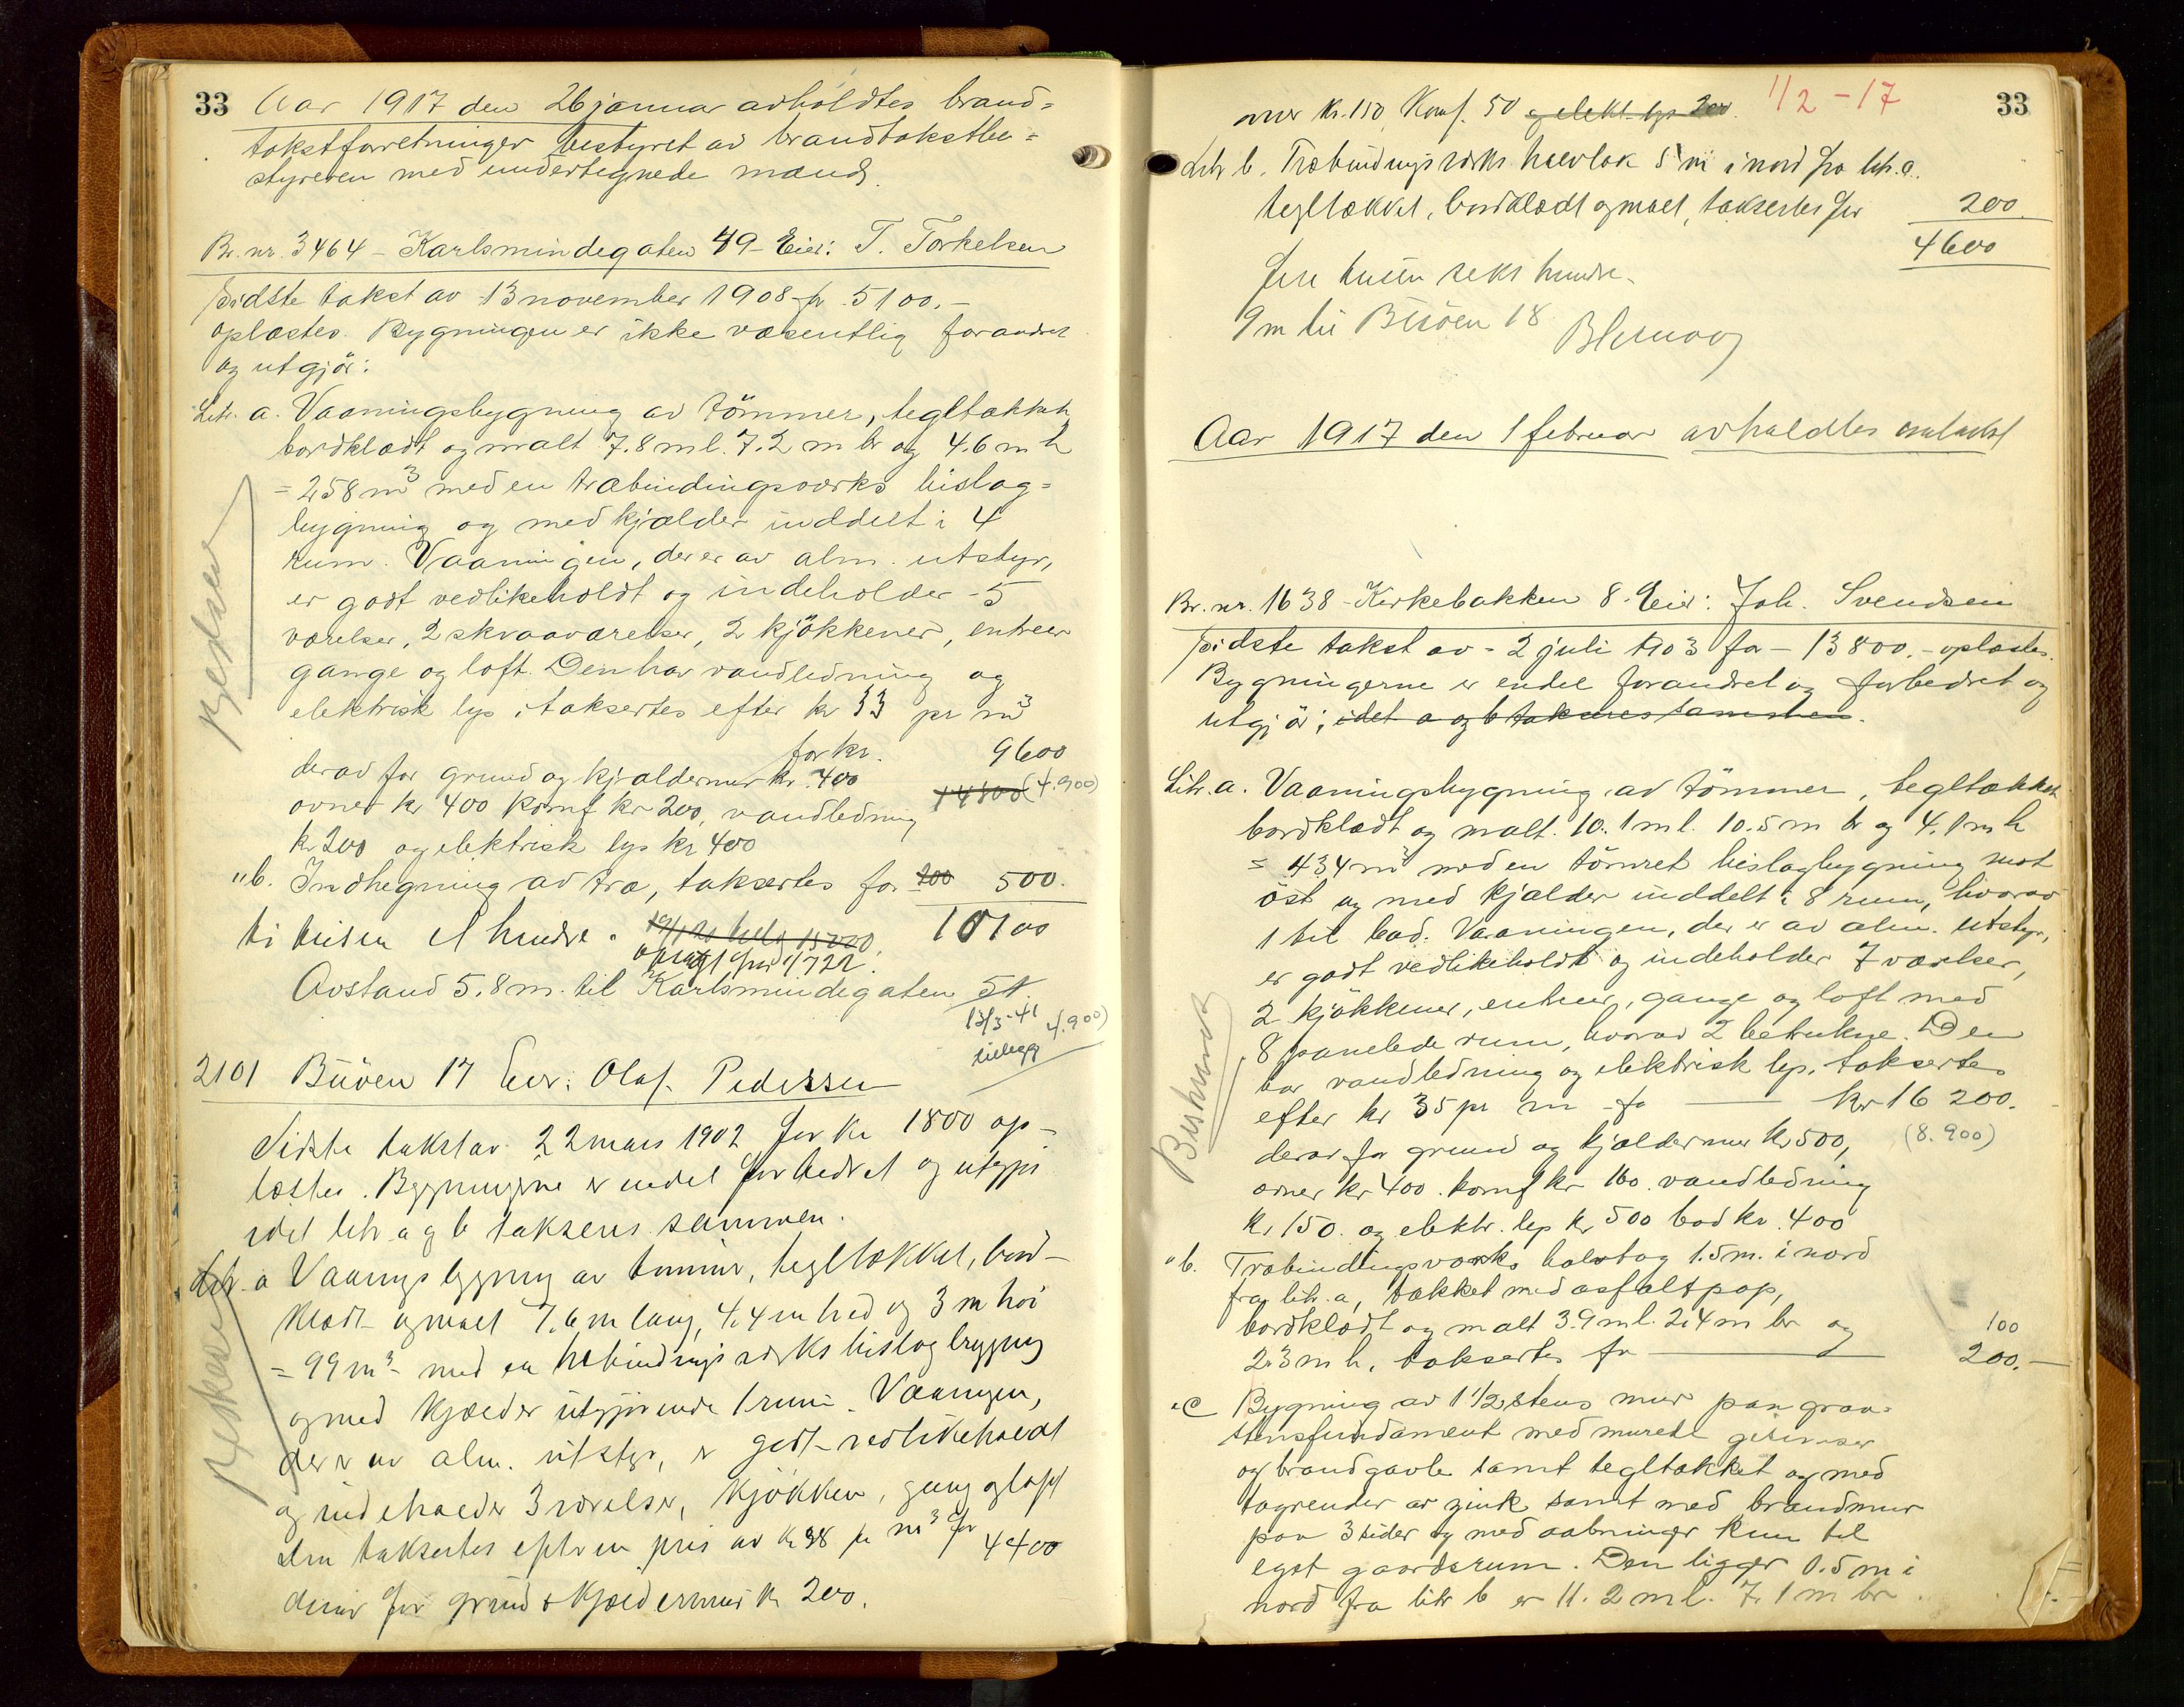 33 Aar 1917 den 26 januar avholdtes brand=
takstforretninger bestyret av brandtakstbe=
styreren med undertegnede mænd.
Br. nr. 3464 - Karlsmindegaten 49 - Eier: T. Torkelsen
Sidste takst av 13 november 1908 fr 5100.-
oplæstes. Bygningen er ikke væsentlig forandret
og utgjör:
Litr. a. Vaaningsbygning av tömmer, tegltækket
bordklædt og malt 7.8 m l. 7.2 m br og 4.6 m h
= 258 m3 med en træbindingsværks bislag=
bygning og med kjælder inddelt i 4
rum. Vaaningen, der er av alm. utstyr,
er godt vedlikeholdt og indeholder - 5
værelser, 2 skraaværelser, 2 kjökkener, entreer
gange og loft. Den har vandledning og
elektrisk lys, taksertes efter kr 33 pr m3
for kr. 9600
derav for grund og kjældermur kr. 400
14800 (4.900)
ovner kr 400 komf kr 200, vandledning
kr 200 og elektrisk lys kr 400
" b. Indhegning av træ, taksertes for 200 500.
ti tusen et hundre. 10100
15000
Avstand 5.8 m. til Karlsmindegaten 51
13/3-41 4.900)
tillegg
2101 Biöen 17 Eier: Olaf Pedersen
Sidste takst av 22 mars 1902 for kr 1800 op-
læstes. Bygningerne er endel forbedret og utgjör
idet litr a og b takseres sammen.
Litr. a Vaaningsbygning av tømmer, tegltækket, bord-
klædt og malt 7,6 m lang, 4,4 m bred og 3 m høi
= 99 m3 med en træbindingsværks bislagbygning
og med kjælder utgjørende 1 rum. Vaaningen,
der er av alm. utstyr, er godt vedlikeholdt
og indeholder 3 værelser, kjökken, gang og loft
Den taksertes efter en pris av kr 38 pr m3 for 4400
derav for grund & kjældermur kr 200.
Beskrevet
Beskrevet
ovner kr. 150, Komf. 50 og elekt. lys 200. 1/2 - 17 33
Litr b. Træbindingsværks halvtak 5 m i nord fra litr. a.
tegltækket, bordklædt og malt, taksertes for 200
4600
fire tusen seks hundre.
9 m til Biöen 18
Aar 1917 den 1 februar avholdtes omtakst
Br. nr. 1638 - Kirkebakken 8. Eier: Joh. Svendsen
Sidste takst av - 2 juli 1903 for - 13800.- oplæstes.
Bygningerne er endel forandret og forbedret og
utgjör; idet a og b takseres sammen.
Litr. a. Vaaningsbygning av tömmer, tegltækket
bordklædt og malt. 10.1 m l. 10.5 m br og 4.1 m h
= 434 m3 med en tömret bislagbygning mot
öst og med kjælder inddelt i 8 rum, hvorav
1 til bad. Vaaningen, der er av alm. utstyr,
er godt vedlikeholdt og indeholder 7 værelser,
2 kjökkener, entreer, gange og loft med
8 panelede rum, hvorav 2 betrukne. Den
har vandledning og elektrisk lys, taksertes
efter kr 35 pr m fo kr 16 200.
derav for grund og kjældermur kr 500, (8.900)
ovner kr 400. komf kr 160. vandledning
kr 150. og elektr. lys kr 500 bad kr. 400
" b. Træbindingsværks halvtag 1.5 m. i nord
fra litr. a, tækket med asfaltpap,
bordklædt og malt 3.9 m l. 2.4 m br og 100
2.3 m h, taksertes fo 200.-
" c Bygning av 1 1/2 stens mur paa graa=
stensfundament med murede gesimser
og brandgavle samt tegltækket og med
tagrender av zink samt med brandmur
paa 3 sider og med aabninger kun til
eget gaardsrum. Den ligger 0.5 m i
nord fra litr b er 11.2 m l. 7.1 m br
Beskrevet